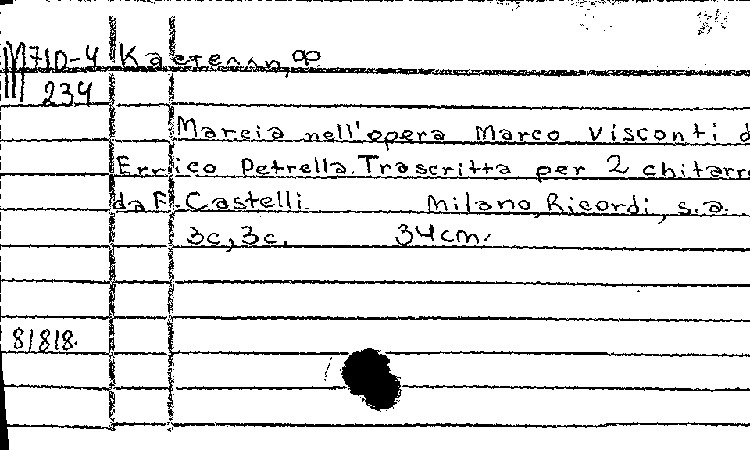 М710-4 Кастелли, Ф
234
Marcia nell'opera Marco Visconti d
Errico Petrella. Trascritta per 2 chitarre
da F. Castelli Milano, Ricordi, s.a.
3c, 3c. 34cm.
81818.